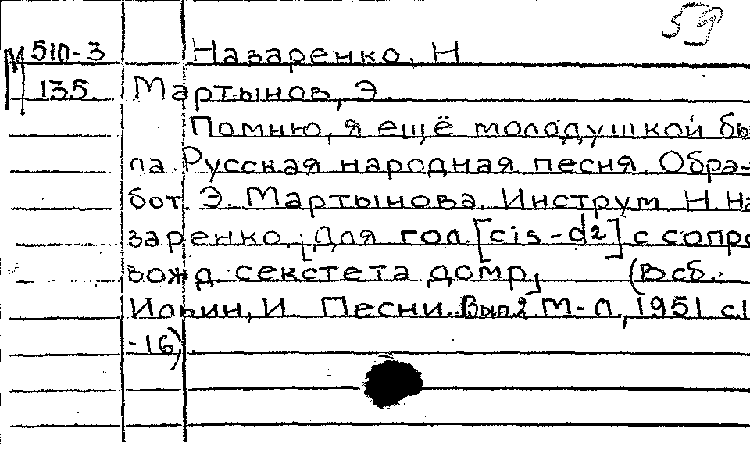 59
М 510-3 Назаренко, Н
135 Мартынов, Э
Помню, я ещё молодушкой бы
ла. Русская народная песня. Обра-
бот. Э. Мартынова. Инструм. Н. На
заренко. [Для гол. [cis-d2] с сопро
вожд. секстета домр] (В сб.:
Ильин, И. Песни. Вып 2 М-Л, 1951 с 1
-16)